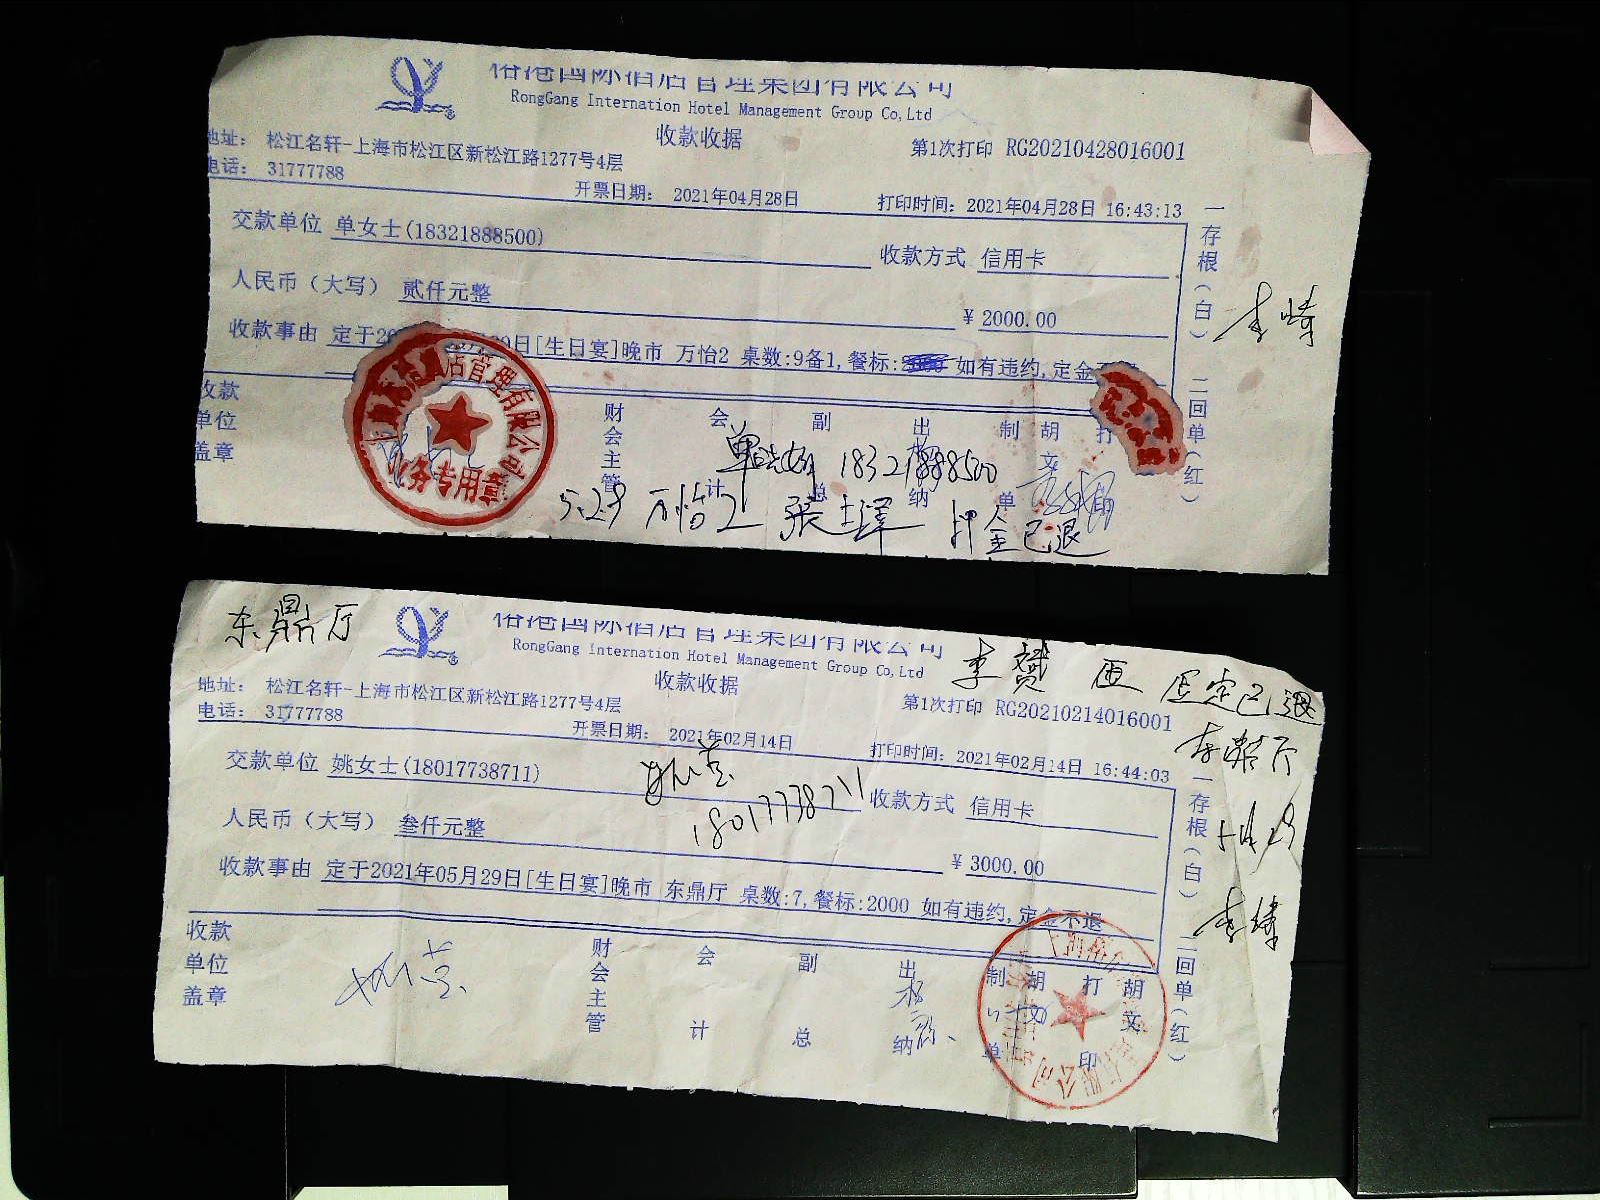 国际酒店管理集团有限公司
RongGang Internation Hotel Management Group Co,Ltd
收款收据
地址： 松江名轩-上海市松江区新松江路1277号4层
第1次打印 RG20210428016001
电话： 31777788
开票日期： 2021年04月28日
打印时间：2021年04月28日 16:43:13
交款单位 单女士(18321888500)
收款方式 信用卡
人民币（大写） 贰仟元整
￥2000.00
收款事由 定于20 29日[生日宴]晚市 万怡2 桌数:9备1,餐标: 如有违约,定金
收款单位盖章
财会主管
会计
副总
出纳
制单 胡文
打
一存根(白)
二回单(红)
店管理有限公司
业务专用章
18321888500
5.29 万怡2 张 押金已退
李
东鼎厅
国际酒店管理集团有限公司
RongGang Internation Hotel Management Group Co,Ltd
收款收据
李赟 定已退
地址： 松江名轩-上海市松江区新松江路1277号4层
第1次打印 RG20210214016001
电话： 31777788
开票日期： 2021年02月14日
打印时间：2021年02月14日 16:44:03
东鼎厅
交款单位 姚女士(18017738711)
18017738711
收款方式 信用卡
人民币（大写） 叁仟元整
￥3000.00
收款事由 定于2021年05月29日[生日宴]晚市 东鼎厅 桌数:7,餐标:2000 如有违约,定金不退
收款单位盖章
财会主管
会计
副总
出纳
制单 胡文
打印 胡文
一存根(白)
二回单(红)
李